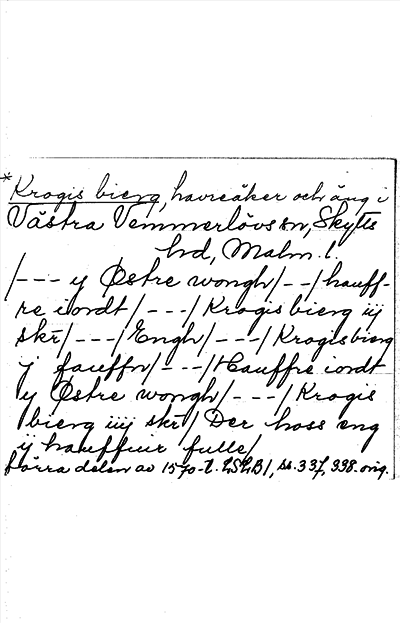 * Krogis bierg, havreåker och äng i
Västra Vemmerlövs sn, Skytts
hd, Malm. l.
/--- y Østre wongh/--/hauff-
re iordt/---/Krogis bierg iij
skr/---/Engh/---/Krogis bierg
j fauffn/---/Hauffre iordt
y Østre wongh/---/Krogis
bierg iiij skr/ Der hoss eng
ij hauffuir fulle/
Förra delen av 1570-t. LSLB1, ss. 337, 998. orig.